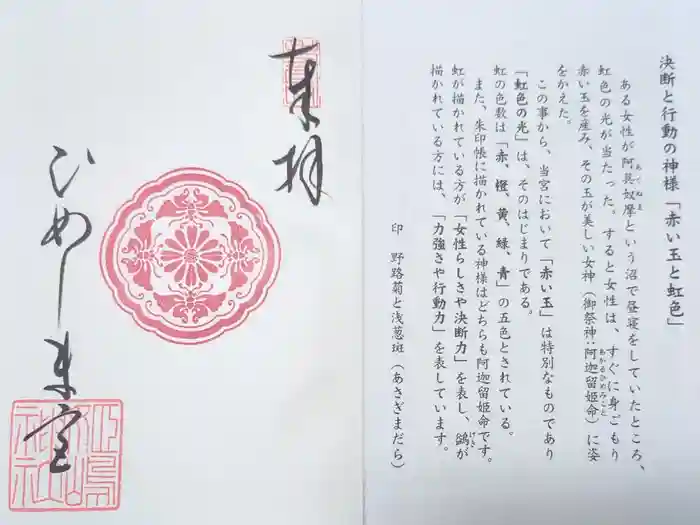 奉拝
ひめしま宮
決断と行動の神様「赤い玉と虹色」
ある女性が阿具奴摩という沼で昼寝をしていたところ、
虹色の光が当たった。すると女性は、すぐに身ごもり
赤い玉を産み、その玉が美しい女神(御祭神：阿迦留姫命)に姿
をかえた。
この事から、当宮において「赤い玉」は特別なものであり
「虹色の光」は、そのはじまりである。
虹の色数は「赤、橙、黄、緑、青」の五色とされている。
また、朱印帳に描かれている神様はどちらも阿迦留姫命です。
虹が描かれている方が「女性らしさや決断力」を表し、鷁が
描かれている方には、「力強さや行動力」を表しています。
印　野路菊と浅葱斑(あさぎまだら)